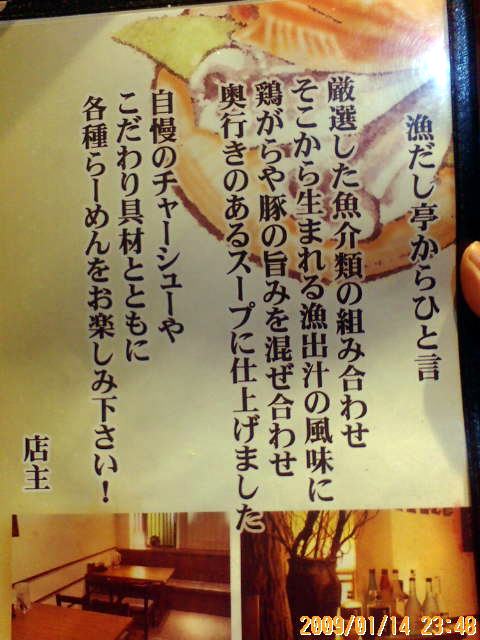 漁だし亭からひと言
厳選した魚介類の組み合わせ
そこから生まれる漁出汁の風味に
鶏がらや豚の旨みを混ぜ合わせ
奥行きのあるスープに仕上げました
自慢のチャーシューや
こだわり具材とともに
各種らーめんをお楽しみ下さい！
店主
2009/01/14 23:48